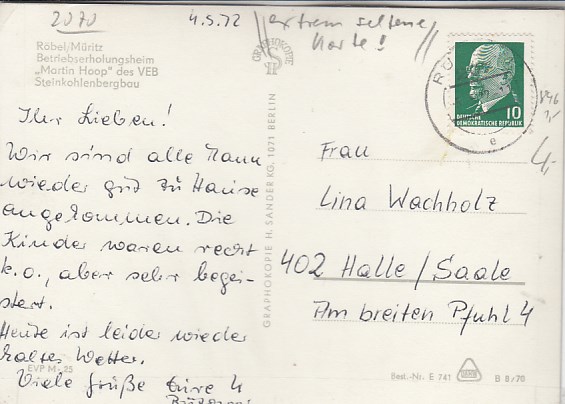 2070
4.5.72
extrem seltene
Karte!
Röbel/Müritz
Betriebserholungsheim
„Martin Hoop" des VEB
Steinkohlenbergbau
Ihr Lieben!
Wir sind alle Mann
wieder gut zu Hause
angekommen. Die
Kinder waren recht
k.o., aber sehr begei-
stert.
Heute ist leider wieder
kaltes Wetter.
Viele Grüße Eure 4
EVP M -,25
GRAPHOKOPIE
GRAPHOKOPIE H. SANDER KG, 1071 BERLIN
10
DEUTSCHE
DEMOKRATISCHE REPUBLIK
e
4,-
Frau
Lina Wachholz
402 Halle/Saale
Am breiten Pfuhl 4
Best.-Nr. E 741
B 8/70